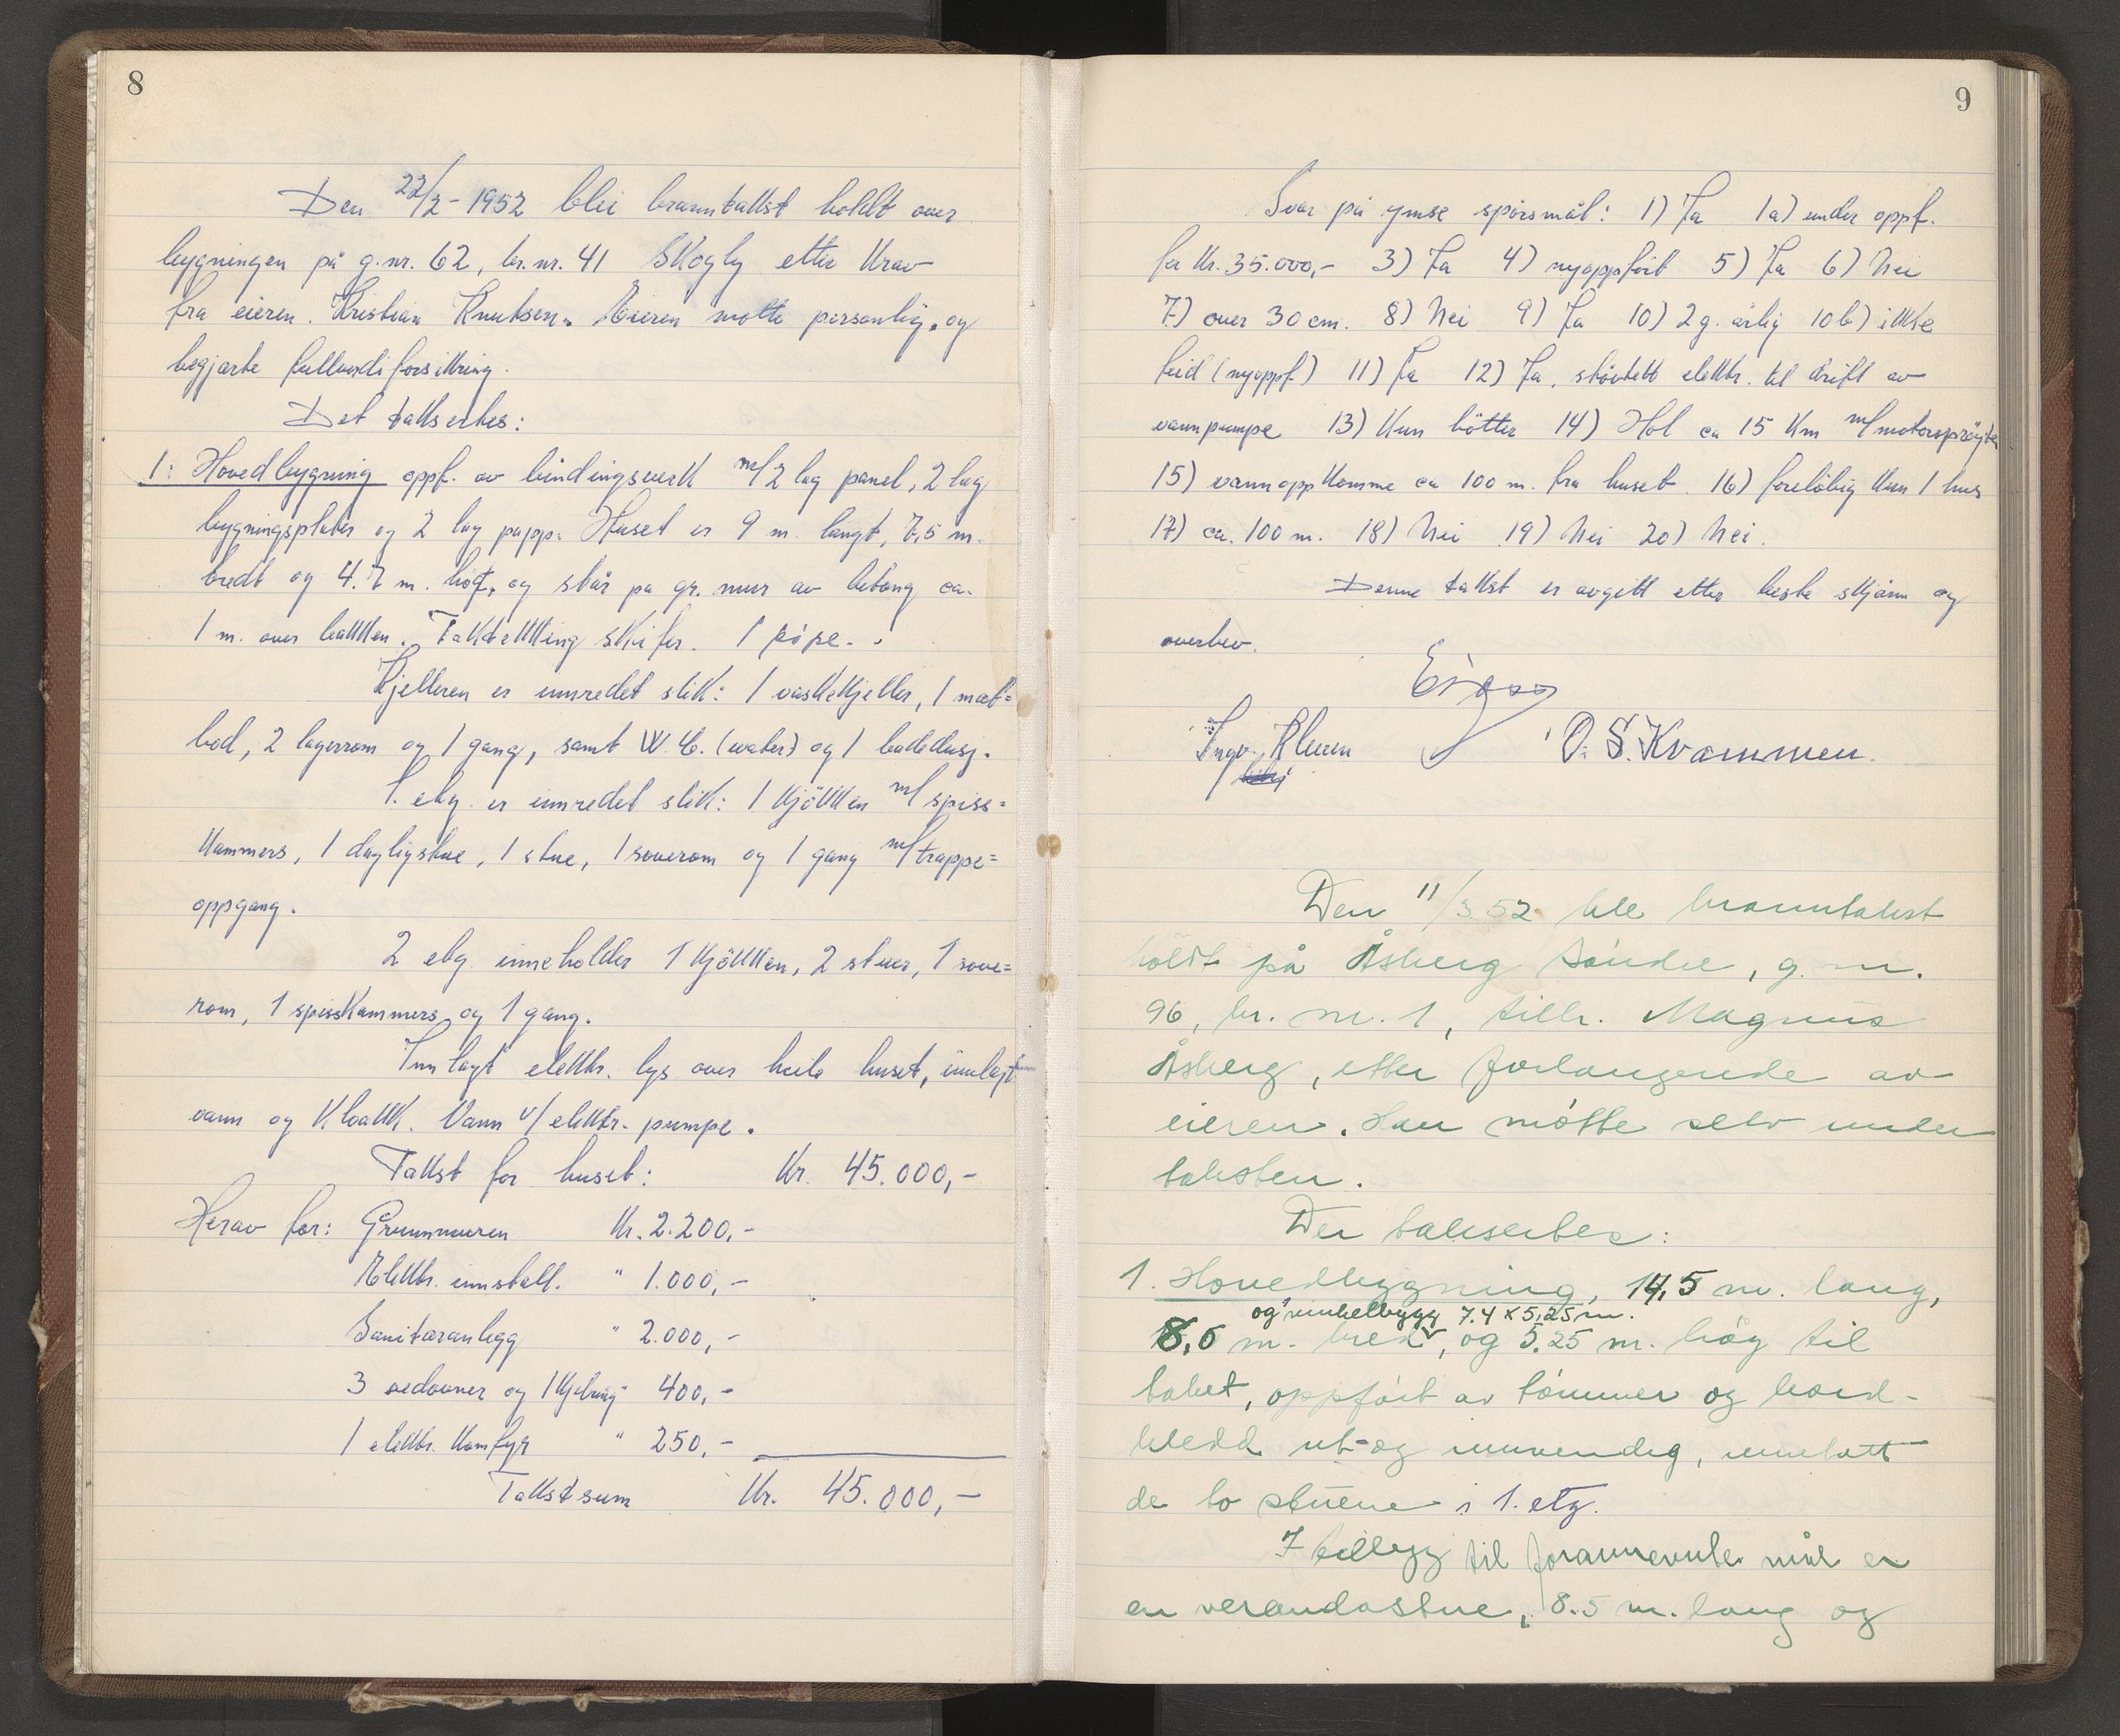 8
Den 22/2- 1952 blei branntakst holdt over
bygningen på g.nr. 62, br.nr. 41 Skogly etter krav
fra eieren. Kristian Knutsen. Eieren møtte personlig, og
begjærte fullverdiforsikring.
Det takserkes:
1: Hovedbygning oppf. av bindingsverk m/2 lag panel, 2 lag
bygningsplater og 2 lag papp. Huset er 9 m. langt, 7,5 m.
bredt og 4.7 m. høgt, og står på gr. mur av betong ca.
1 m. over bakken. Taktekking skifer. 1 pipe.
Kjelleren er innredet slik: 1 vaskekjeller, 1 mat=
bod, 2 lagerrom og 1 gang, samt W.C. (water) og 1 badedusj.
1. etg. er innredet slik: 1 kjökken m/ spiss=
kammers, 1 dagligstue, 1 stue, 1 soverom og 1 gang m/trappe=
oppgang.
2 etg inneholder 1 kjökken, 2 stuer, 1 sove=
rom, 1 spisskammers og 1 gang.
Innlagt elektr. lys over heile huset, innlagt
vann og kloakk. Vann v/ elektr. pumpe.
Takst for huset: Kr. 45.000,-
Herav for: Grunnmuren Kr. 2.200,-
Elektr. innstall. " 1.000,-
Sanitæranlegg " 2.000,-
3 vedovner og 1 kjelring " 400,-
1 elektr. komfyr " 250,-
Takstsum Kr. 45.000,-
9
Svar på ymse spörsmål: 1) Ja 1a) under oppf.
for Kr. 35.000,- 3) Ja 4) nyoppfört 5) Ja 6) Nei
7) over 30 cm. 8) Nei 9) Ja 10) 2 g. årlig 10b) ikke
feid (nyoppf.) 11) Ja 12) Ja, stövtett elektr. til drift av
vannpumpe 13) Kun bötter 14) Hol ca 15 Km m/motorspröyte
15) vannoppkomme ca 100 m. fra huset. 16) forelöbig kun 1 hus
17) ca. 100 m. 18) Nei 19) Nei 20) Nei.
Denne takst er avgitt etter beste skjönn og
overbev.
Ingv. Kleven O. S. Kvammen.
Den 11/3 52 ble branntakst
holdt på Åsberg söndre, g. nr.
96, br. nr. 1, tilh. Magnus
Åsberg, etter forlangende av
eieren. Han mötte selv under
taksten.
Der taksertes:
1. Hovedbygning, 14,5 m. lang,
og vinkelbygg 7.4 x 5,25 m.
8,5 m. bred, og 5.25 m. höy til
taket, oppfört av tömmer og bord-
kledd ut- og innvendig, unntatt
de to stuene i 1. etg.
I tillegg til forannevnte mål er
en verandastue, 8.5 m. lang og